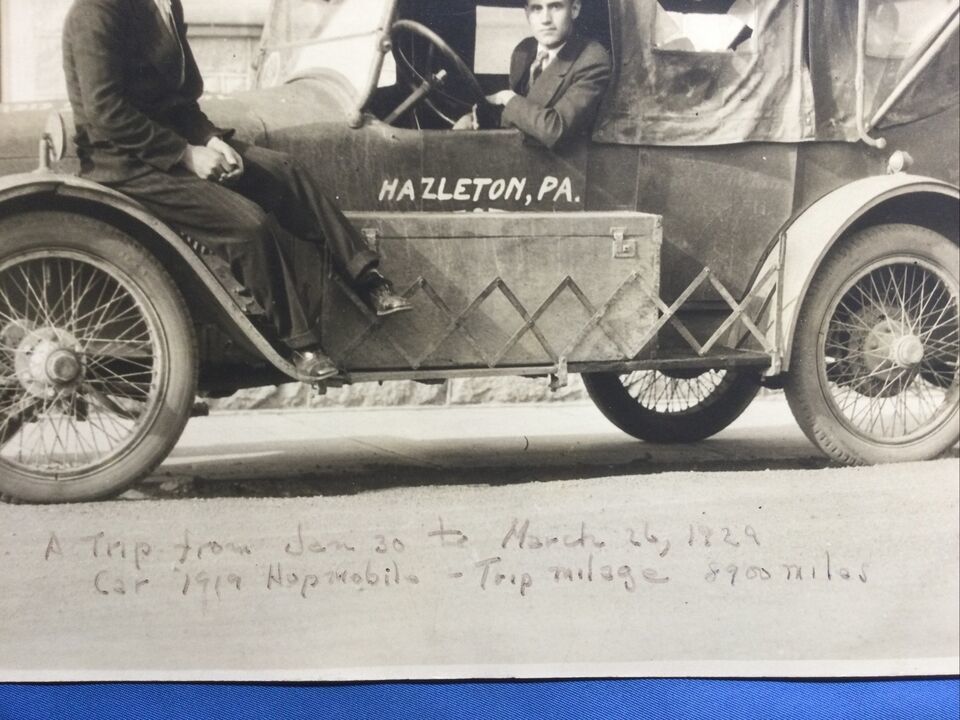 HAZLETON, PA.
A Trip from Jan 30 to March 26, 1929
Car 1919 Hupmobile - Trip milage 8900 miles